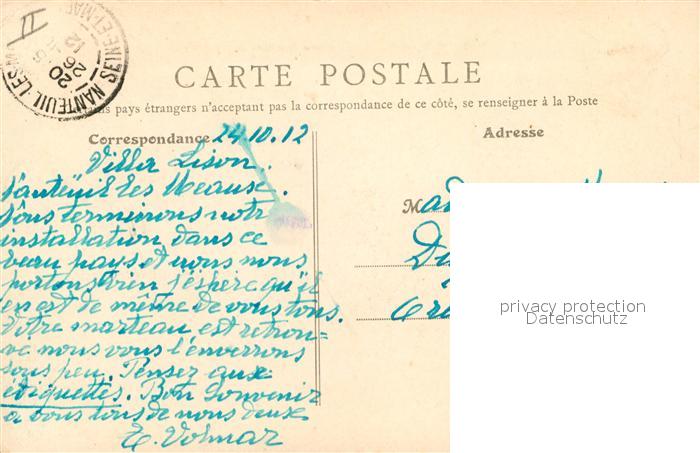 II
NANTEUIL-LES-M
SEINE-ET-MAR
20
26
12
CARTE POSTALE
pays étrangers n'acceptant pas la correspondance de ce côté, se renseigner à la Poste
Correspondance 24.10.12
Adresse
Villa Lison.
Nanteüil les Meaux.
Nous terminons notre
installation dans ce
beau pays et nous nous
portons bien j'espère qu'il
en est de même de vous tous.
Votre marteau est retrou-
vé nous vous l'enverrons
sous peu. Pensez aux
étiquettes. Bon Souvenir
a vous tous de nous deux
E. Volmar
Mad
privacy protection
Datenschutz